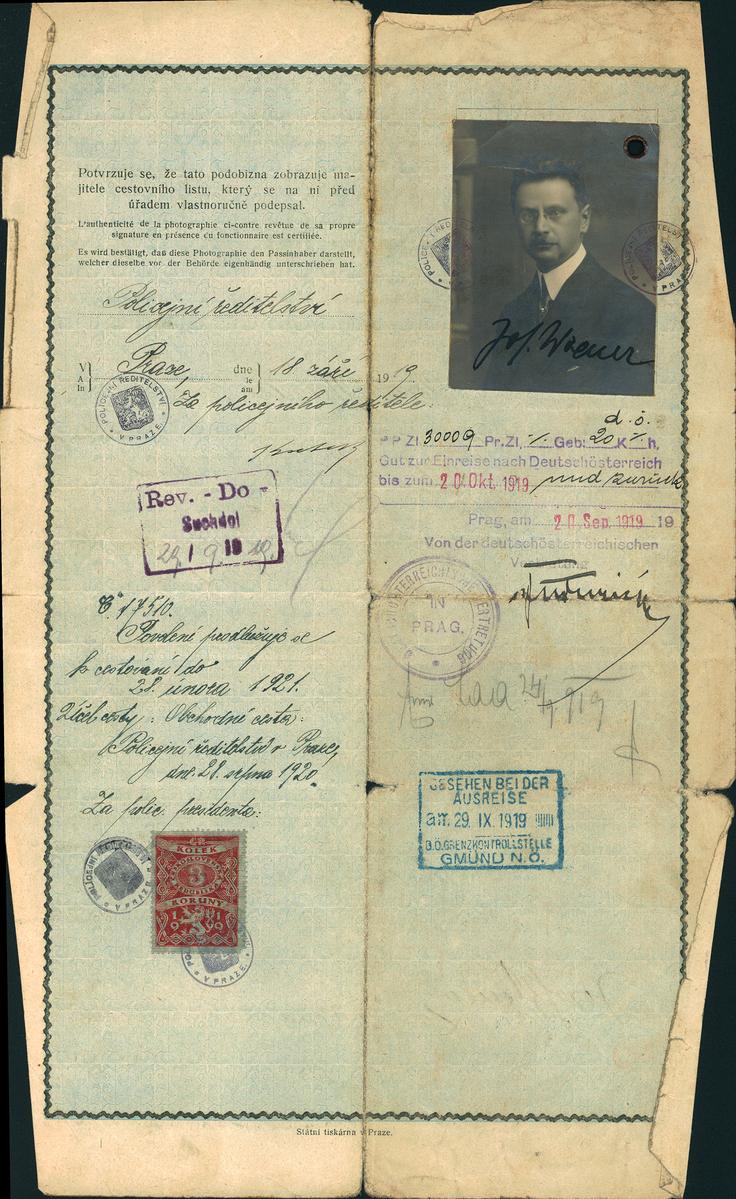 Potvrzuje se, že tato podobizna zobrazuje ma-
jitele cestovního listu, který se na ní před
úřadem vlastnoručně podepsal.
L'authenticité de la photographie ci-contre revêtue de sa propre
signature en présence du fonctionnaire est certifiée.
Es wird bestätigt, daß diese Photographie den Passinhaber darstellt,
welcher dieselbe vor der Behörde eigenhändig unterschrieben hat.
Policejní ředitelství
V
A
In
Praze,
dne
le
am
18 září 1919
Za policejního ředitele:
POLICEJNÍ ŘEDITELSTVÍ
V PRAZE
Rev. - Do -
Suchdol
29 9 19
Č. 17510.
Povolení prodlužuje se
k cestování do
28. února 1921.
Účel cesty: Obchodní cesta.
Policejní ředitelství v Praze,
dne 28. srpna 1920
Za polic. presidenta:
POLICEJNÍ ŘEDITELSTVÍ
V PRAZE
KOLEK
3
KORUNY
1919
V PRAZE
Jos.
POLICEJNÍ ŘEDITELSTVÍ
V PRAZE
d. ö.
PP Zl. 30009 Pr. Zl. Geb: 20 K h.
Gut zur Einreise nach Deutschösterreich
bis zum 20. Okt. 1919 und zurück
Prag, am 20. Sep. 1919 19
Von der deutschösterreichischen
Vertretung
ÖSTERREICHISCHE VERTRETUNG
IN
PRAG.
GESEHEN BEI DER
AUSREISE
am 29. IX 1919
D.Ö. GRENZKONTROLLSTELLE
GMÜND N.Ö.
Státní tiskárna v Praze.